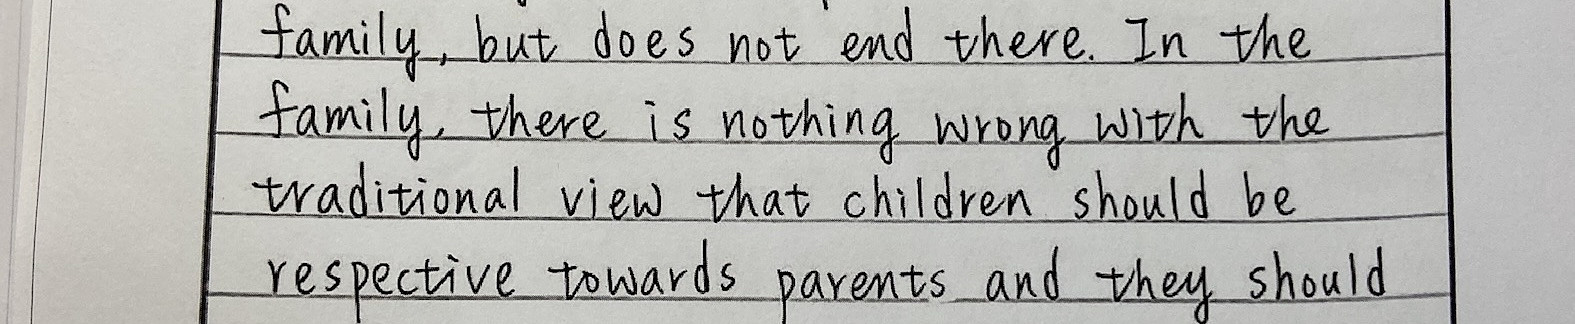 family, but does not end there. In the
family, there is nothing wrong with the
traditional view that children should be
respective towards parents and they should